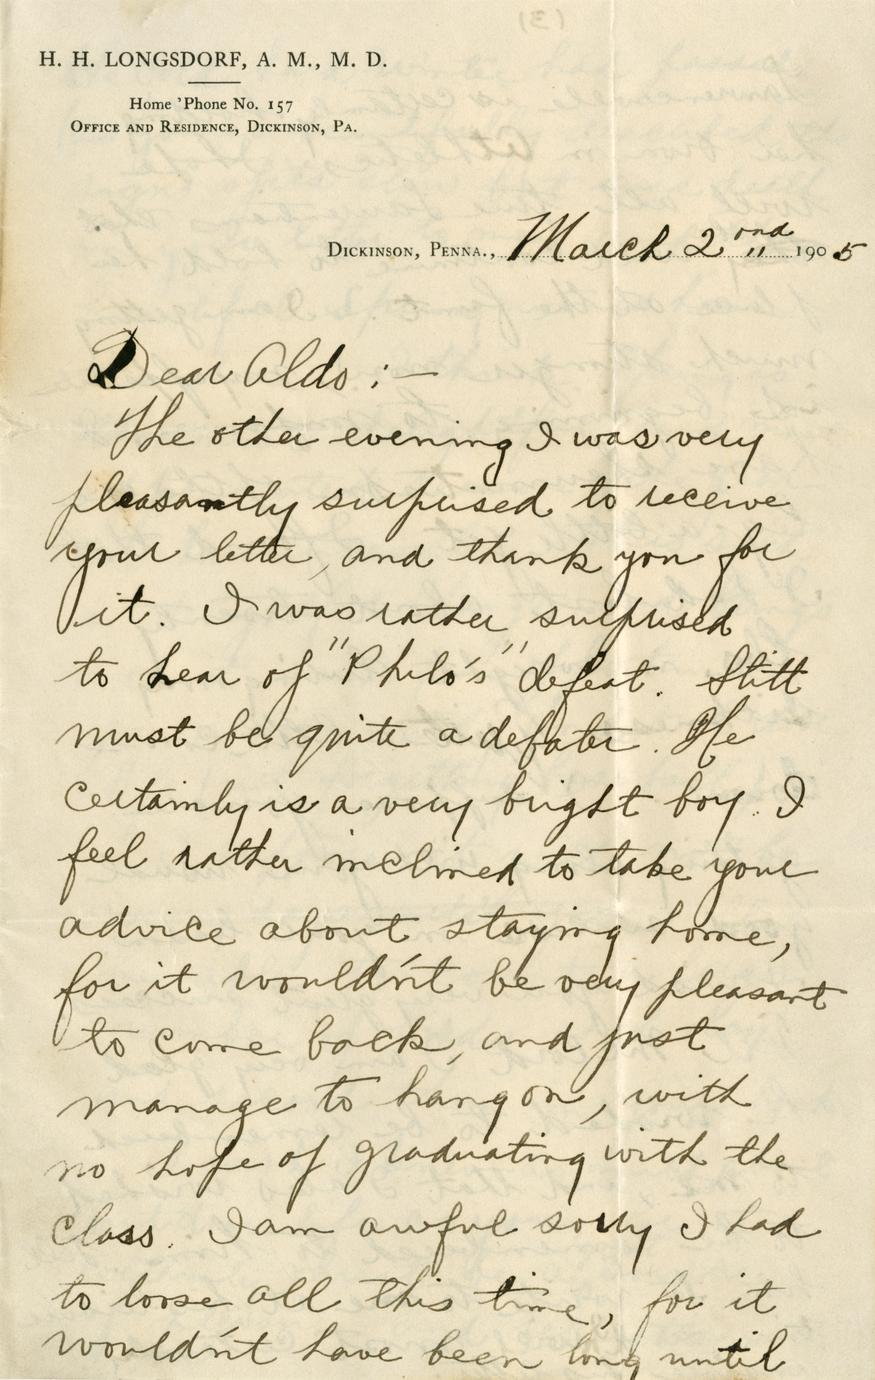 H. H. LONGSDORF, A. M., M. D.
Home 'Phone No. 157
OFFICE AND RESIDENCE, DICKINSON, PA.
DICKINSON, PENNA., March 2nd 1905
Dear Aldo :—
The other evening I was very
pleasantly surprised to receive
your letter, and thank you for
it. I was rather surprised
to hear of "Philo's" defeat. Stitt
must be quite a debater. He
certainly is a very bright boy. I
feel rather inclined to take your
advice about staying home,
for it wouldn't be very pleasant
to come back, and just
manage to hang on, with
no hope of graduating with the
class. I am awful sorry I had
to loose all this time, for it
wouldn't have been long until